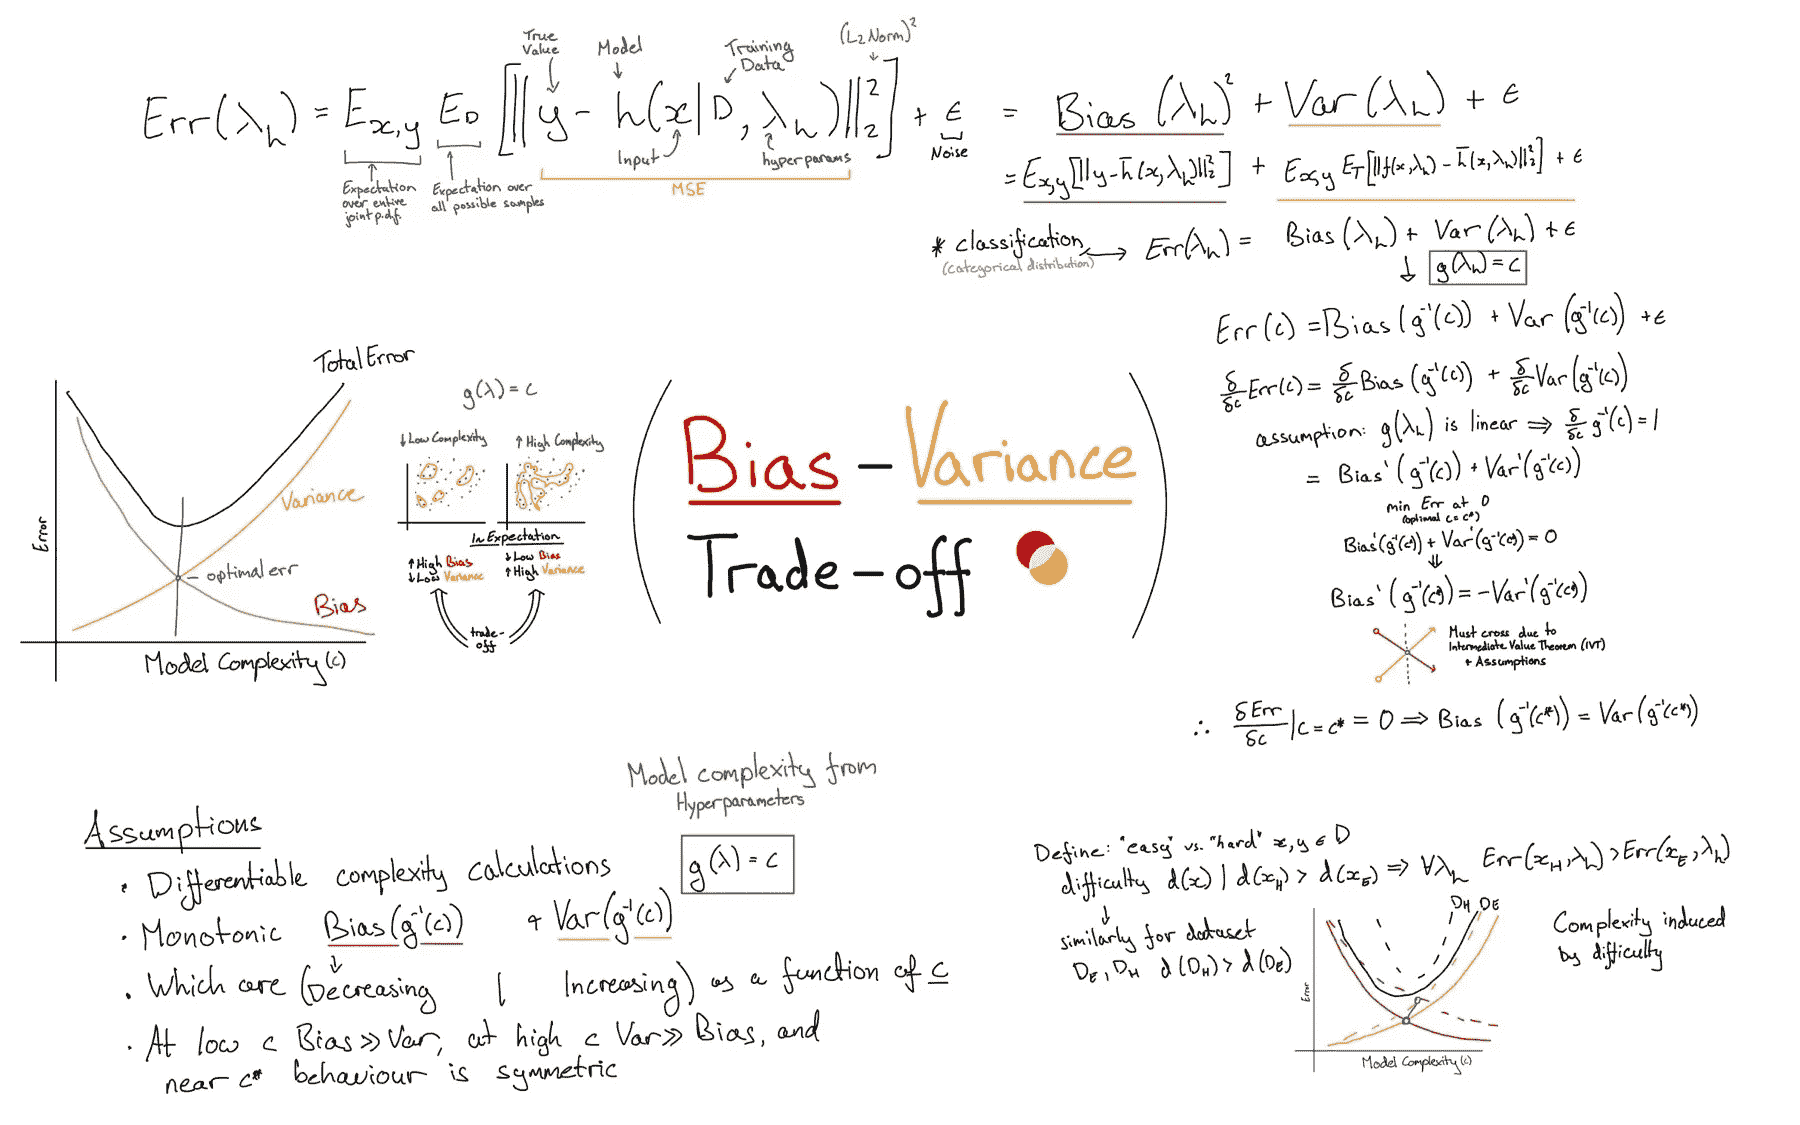 True Value
Model
Training Data
(L₂ Norm)²
Err(λₕ) = E_x,y E_D [‖y - h(x|D, λₕ)‖₂²] + ε = Bias(λₕ)² + Var(λₕ) + ε
Input
hyperparams
Noise
MSE
Expectation over entire joint p.d.f.
Expectation over all possible samples
= E_x,y[‖y-h̄(x,λₕ)‖₂²] + E_x,y E_T[‖f(x,λₕ) - h̄(x,λₕ)‖₂²] + ε
* classification → Err(λₕ) = Bias(λₕ) + Var(λₕ) + ε
(categorical distribution)
↓ g(λₕ) = c
Err(c) = Bias(g⁻¹(c)) + Var(g⁻¹(c)) + ε
δ/δc Err(c) = δ/δc Bias(g⁻¹(c)) + δ/δc Var(g⁻¹(c))
assumption: g(λₕ) is linear ⇒ δ/δc g⁻¹(c) = 1
= Bias'(g⁻¹(c)) + Var'(g⁻¹(c))
min Err at 0
(optimal c = c*)
Bias'(g⁻¹(c*)) + Var'(g⁻¹(c*)) = 0
⇓
Bias'(g⁻¹(c*)) = -Var'(g⁻¹(c*))
Must cross due to
Intermediate Value Theorem (IVT)
+ Assumptions
∴ δErr/δc |c=c* = 0 ⇒ Bias(g⁻¹(c*)) = Var(g⁻¹(c*))
Total Error
Variance
optimal err
Bias
Error
Model Complexity (c)
g(λ) = c
↓ Low Complexity
↑ High Complexity
In Expectation
↑ High Bias
↓ Low Variance
↓ Low Bias
↑ High Variance
trade-off
Bias - Variance
Trade-off
Model complexity from
Hyperparameters
g(λ) = c
Assumptions
· Differentiable complexity calculations
· Monotonic Bias(g⁻¹(c)) + Var(g⁻¹(c))
· Which are (Decreasing | Increasing) as a function of c
· At low c Bias ≫ Var, at high c Var ≫ Bias, and
near c* behaviour is symmetric
Define: "easy" vs. "hard" x,y ∈ D
difficulty d(x) | d(x_H) > d(x_E) ⇒ ∀λₕ Err(x_H, λₕ) > Err(x_E, λₕ)
↓
similarly for dataset
D_E, D_H d(D_H) > d(D_E)
D_H D_E
Error
Model Complexity (c)
Complexity induced
by difficulty